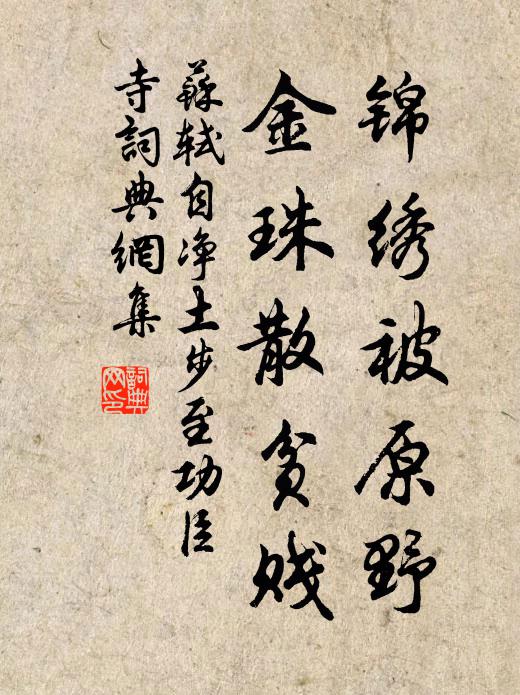 锦绣被原野
金珠散贫贱
蘇軾自净土步至功臣
寺詞典網集
詞典
网印